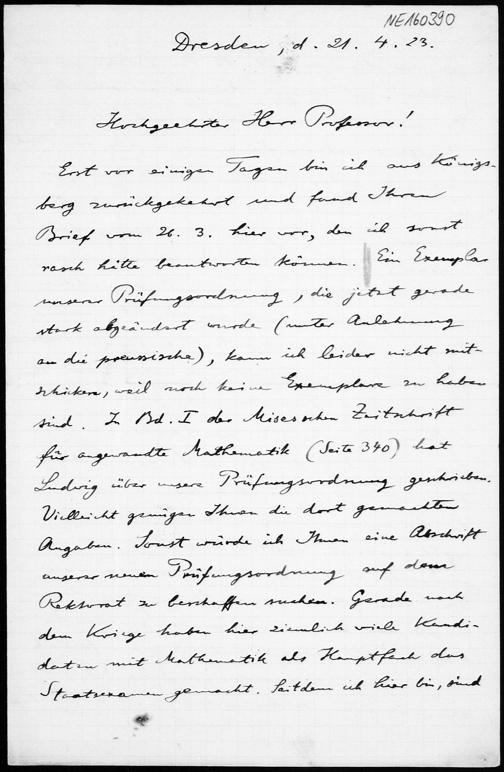 NE160390
Dresden, d. 21. 4. 23.
Hochgeehrter Herr Professor!
Erst vor einigen Tagen bin ich aus Königs-
berg zurückgekehrt und fand Ihren
Brief vom 26. 3. hier vor, den ich sonst
rasch hätte beantworten können. Ein Exemplar
unserer Prüfungsordnung, die jetzt gerade
stark abgeändert wurde (unter Anlehnung
an die preussische), kann ich leider nicht mit-
schicken, weil noch keine Exemplare zu haben
sind. In Bd. I der Misesschen Zeitschrift
für angewandte Mathematik (Seite 340) hat
Ludwig über unsere Prüfungsordnung geschrieben.
Vielleicht genügen Ihnen die dort gemachten
Angaben. Sonst würde ich Ihnen eine Abschrift
unserer neuen Prüfungsordnung auf dem
Rektorat zu beschaffen suchen. Gerade nach
dem Kriege haben hier ziemlich viele Kandi-
daten mit Mathematik als Hauptfach das
Staatsexamen gemacht. Seitdem ich hier bin, sind